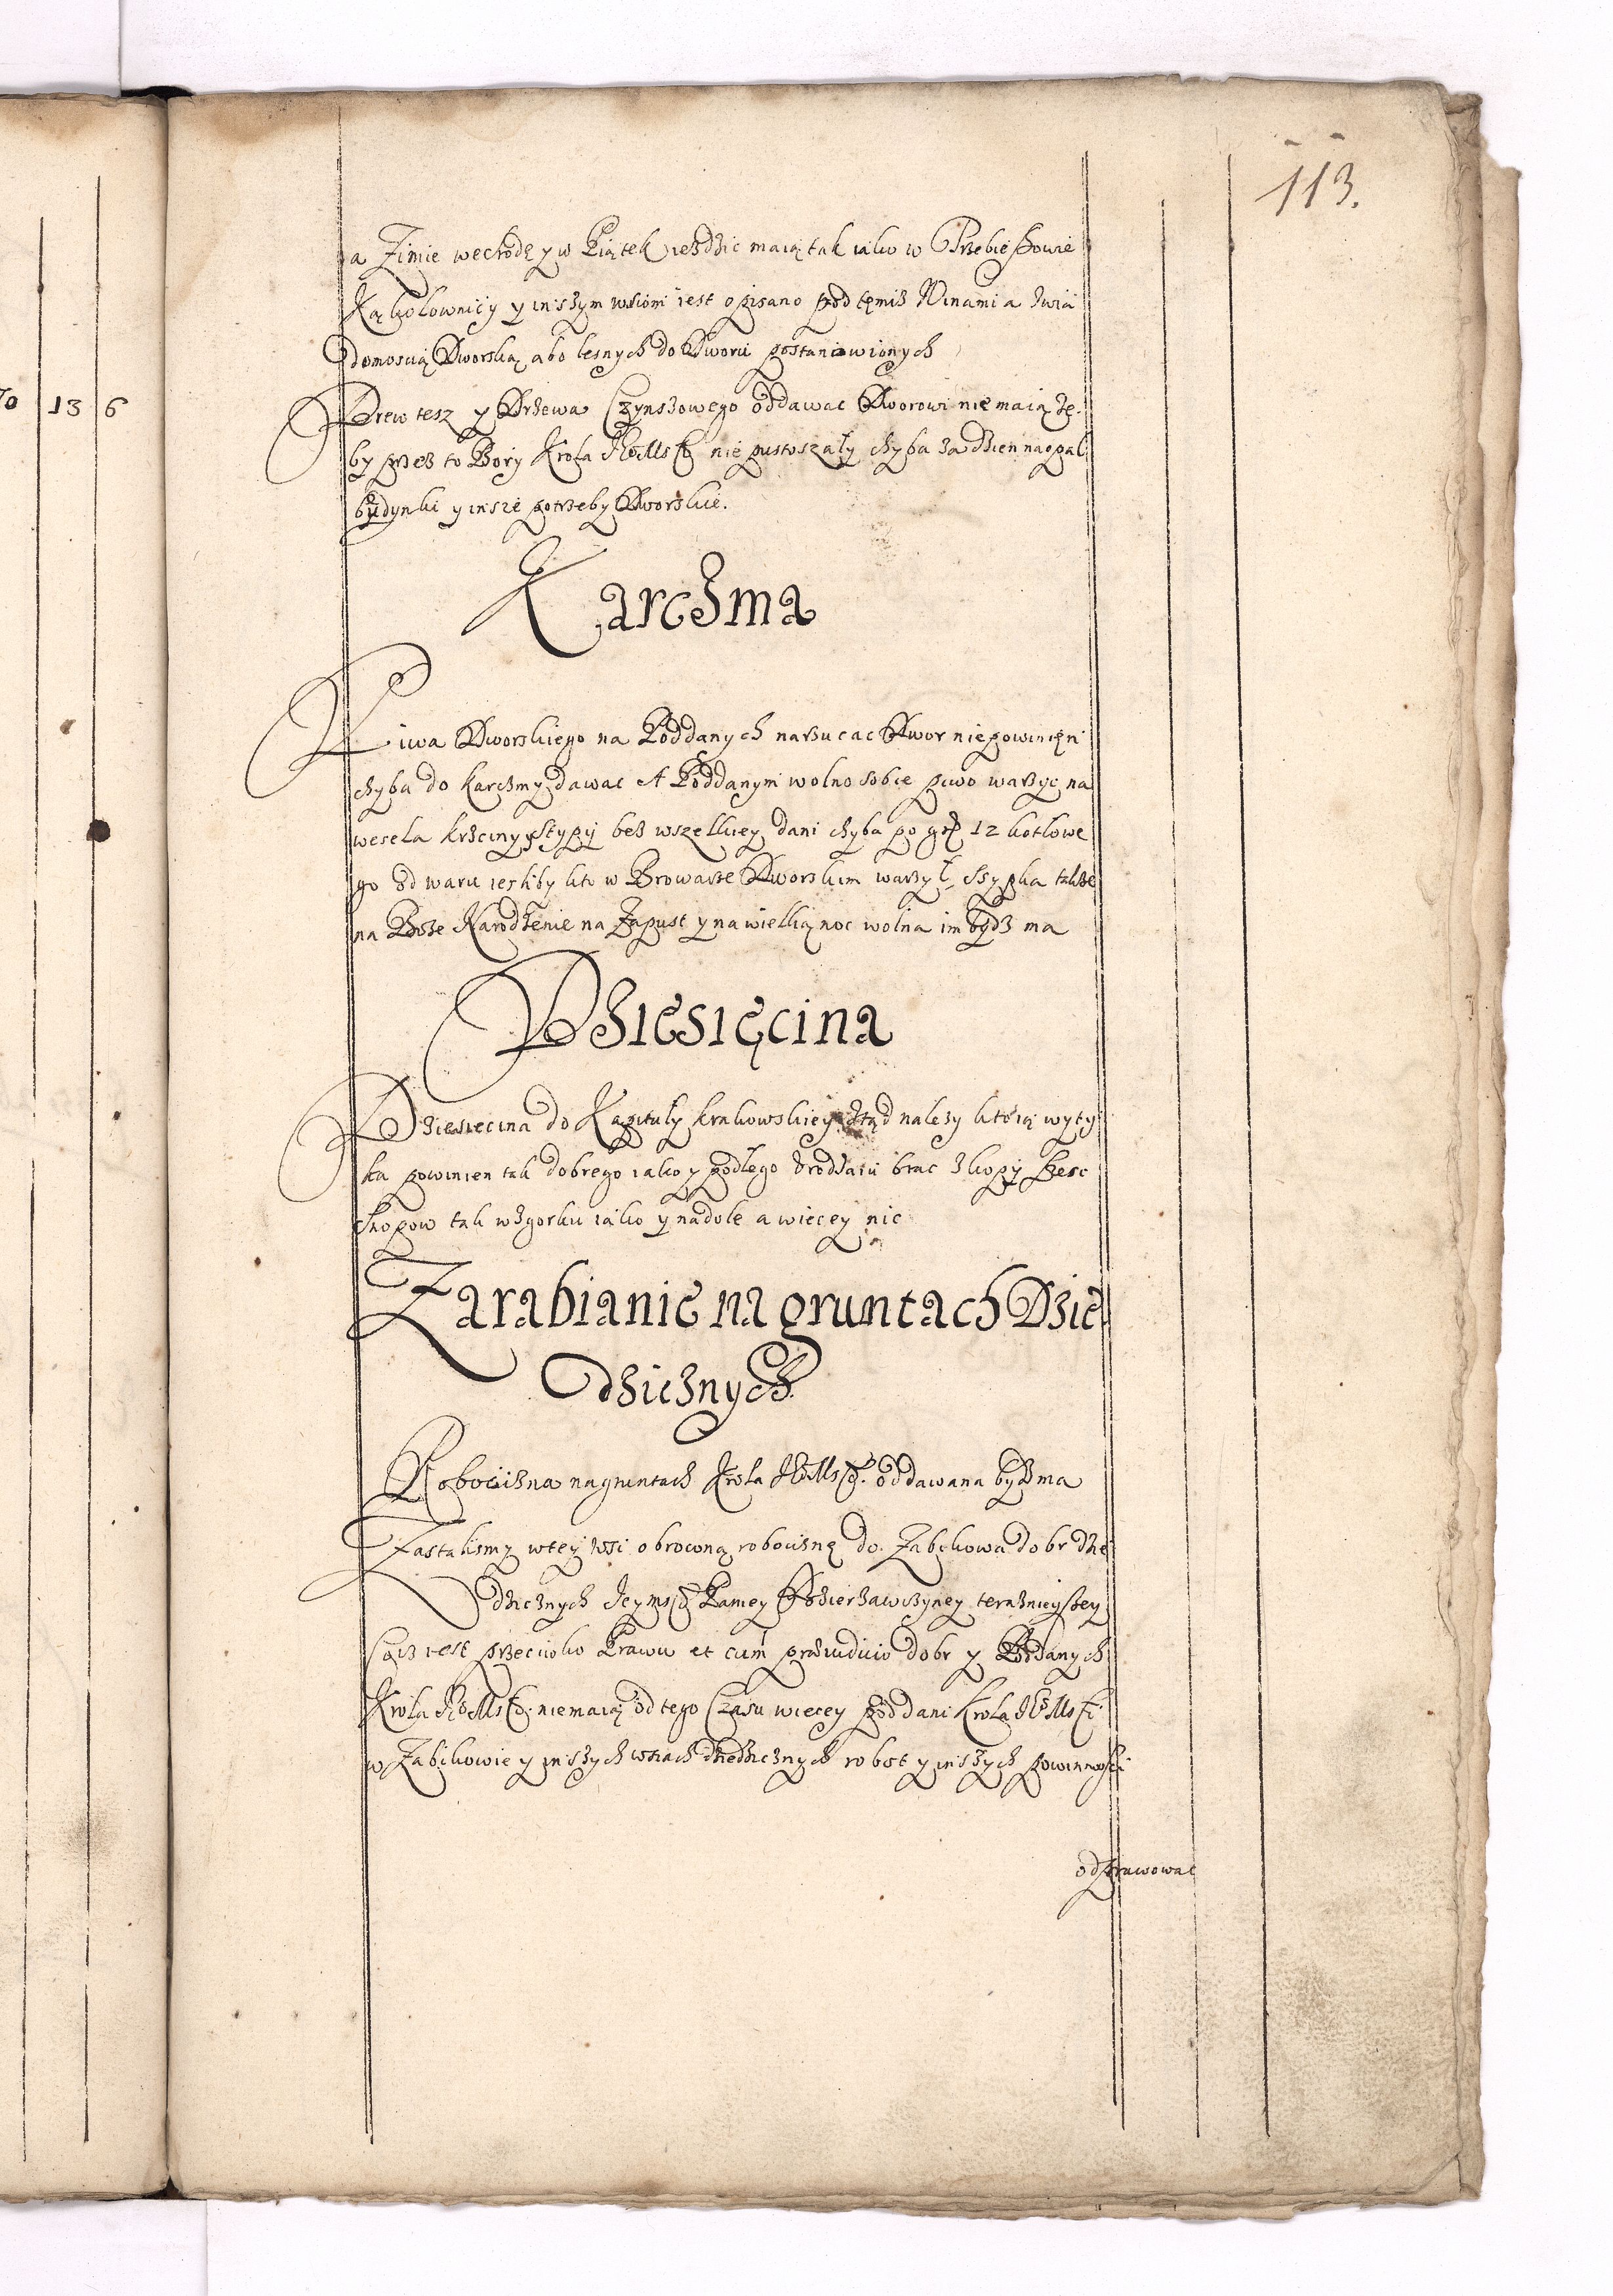 113.
13 6
a Zimie weśrodę y w Piątek ieżdzic maią tak iako w Przebieszowie
Kąkolownicy y inszym wsiom iest opisano pod tęmisz Winami a zwia
domoscią Dworską abo lesnych do Dworu postanowionych
Drew tesz y Drzewa Czynszowego oddawac Dworowi nie maią że
by przez to Bory Krola JMsći nie pustoszały chyba na opał
budynki y insze potrzeby Dworskie.
Karczma
Piwa Dworskiego na Poddanych narzucac Dwor niepowinięn
chyba do karczmy dawac A Poddanym wolno sobie piwo warzyc na
wesela krzciny Stypy bez wszelkiey dani chyba po gr 12 kotłowe
go od waru iesliby kto w Browarze Dworskim warzył, Ssypka także
na Boże Narodzenie na Zapust y na wielkąnoc wolna im bydz ma
Dziesięcina
Dziesiecina do Kapituły krakowskiey ztąd nalezy którą wyty
ka powinien tak dobrego iako y podłego urodzaiu brac z kopy szesc
snopow tak wzgorku iako y nadole a wiecey nic
Zarabianie na gruntach Dzie
dzicznych
Robocizna na gruntach Krola JMsći oddawana bydz ma
Zastalismy wtey wsi obroconą robociznę do Ząbikowa dobr dzie
dzicznych Jeymsći Paniey Dzierzawczyney teraznieyszey
Co isz iest przeciwko Prawu et cum praeiudicio dobr y Poddanych
Krola JMsći niemaią od tego Czasu wiecey poddani Krola JMsći
w Ząbikowie y inszych wsiach dziedzicznych robot y inszych powinnosci
odprawowac